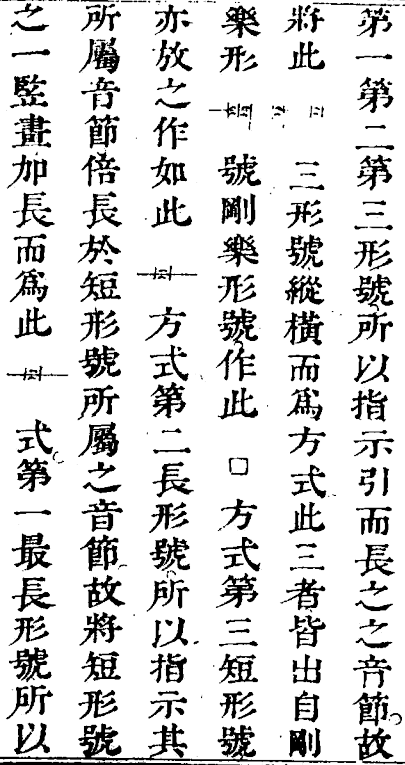 第一第二第三形號所以指示引而長之之音節。故
將此 三形號縱橫而爲方式此三者皆出自剛
樂形 號剛樂形號作此 □ 方式第三短形號
亦放之作如此 方式第二長形號所以指示其
所屬音節倍長於短形號所屬之音節。故將短形號
之一竪畫加長而爲此 式。第一最長形號所以